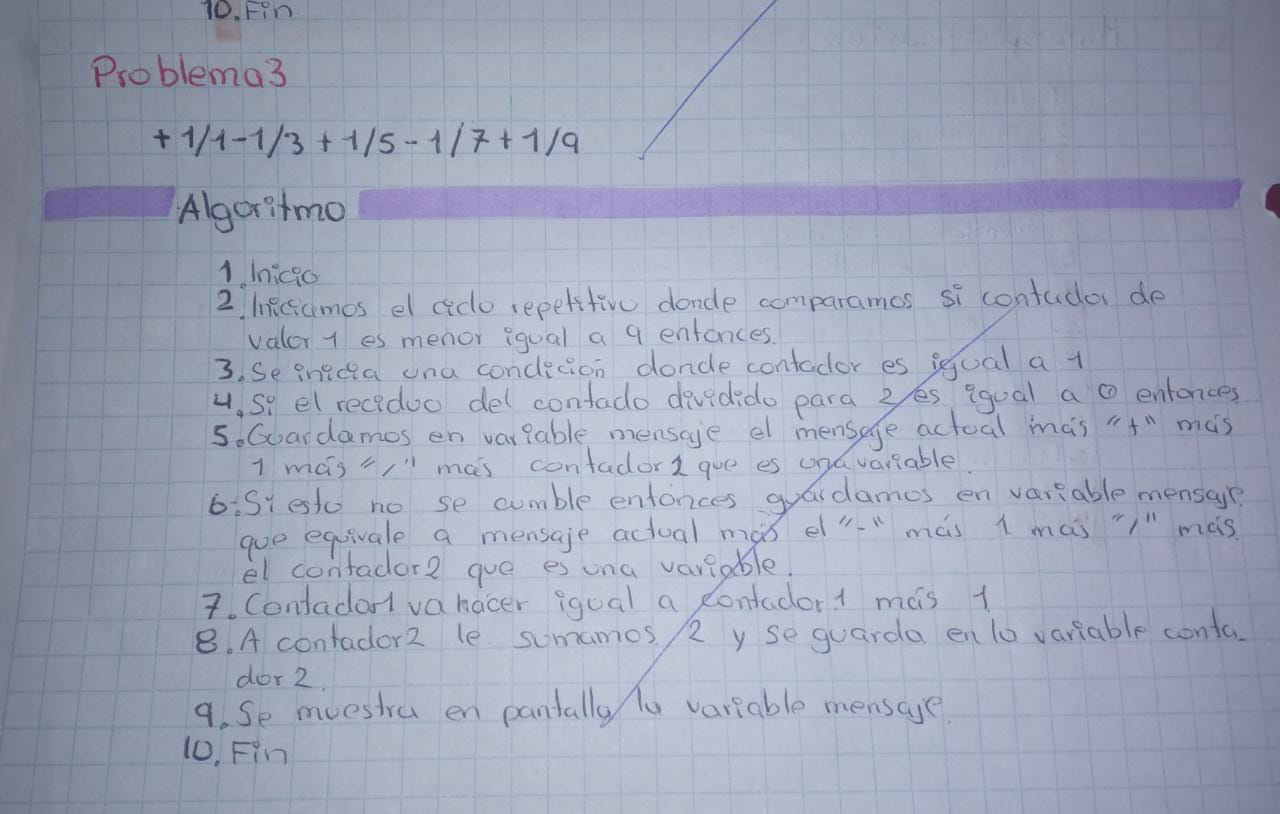 10. Fin
Problema3
+1/1-1/3+1/5-1/7+1/9
Algoritmo
1. Inicio
2. Iniciamos el ciclo repetitivo donde comparamos si contador de
valor 1 es menor igual a 9 entonces.
3. Se inicia una condición donde contador es igual a 1
4. Si el reciduo del contado dividido para 2 es igual a 0 entonces
5. Guardamos en variable mensaje el mensaje actual más "+" más
1 más "/" más contador 2 que es una variable.
6. Si esto no se cumble entonces guardamos en variable mensaje
que equivale a mensaje actual más el "-" más 1 más "/" más
el contador2 que es una variable.
7. Contador1 va hacer igual a contador1 más 1
8. A contador2 le sumamos 2 y se guarda en la variable conta-
dor 2.
9. Se muestra en pantalla la variable mensaje.
10. Fin